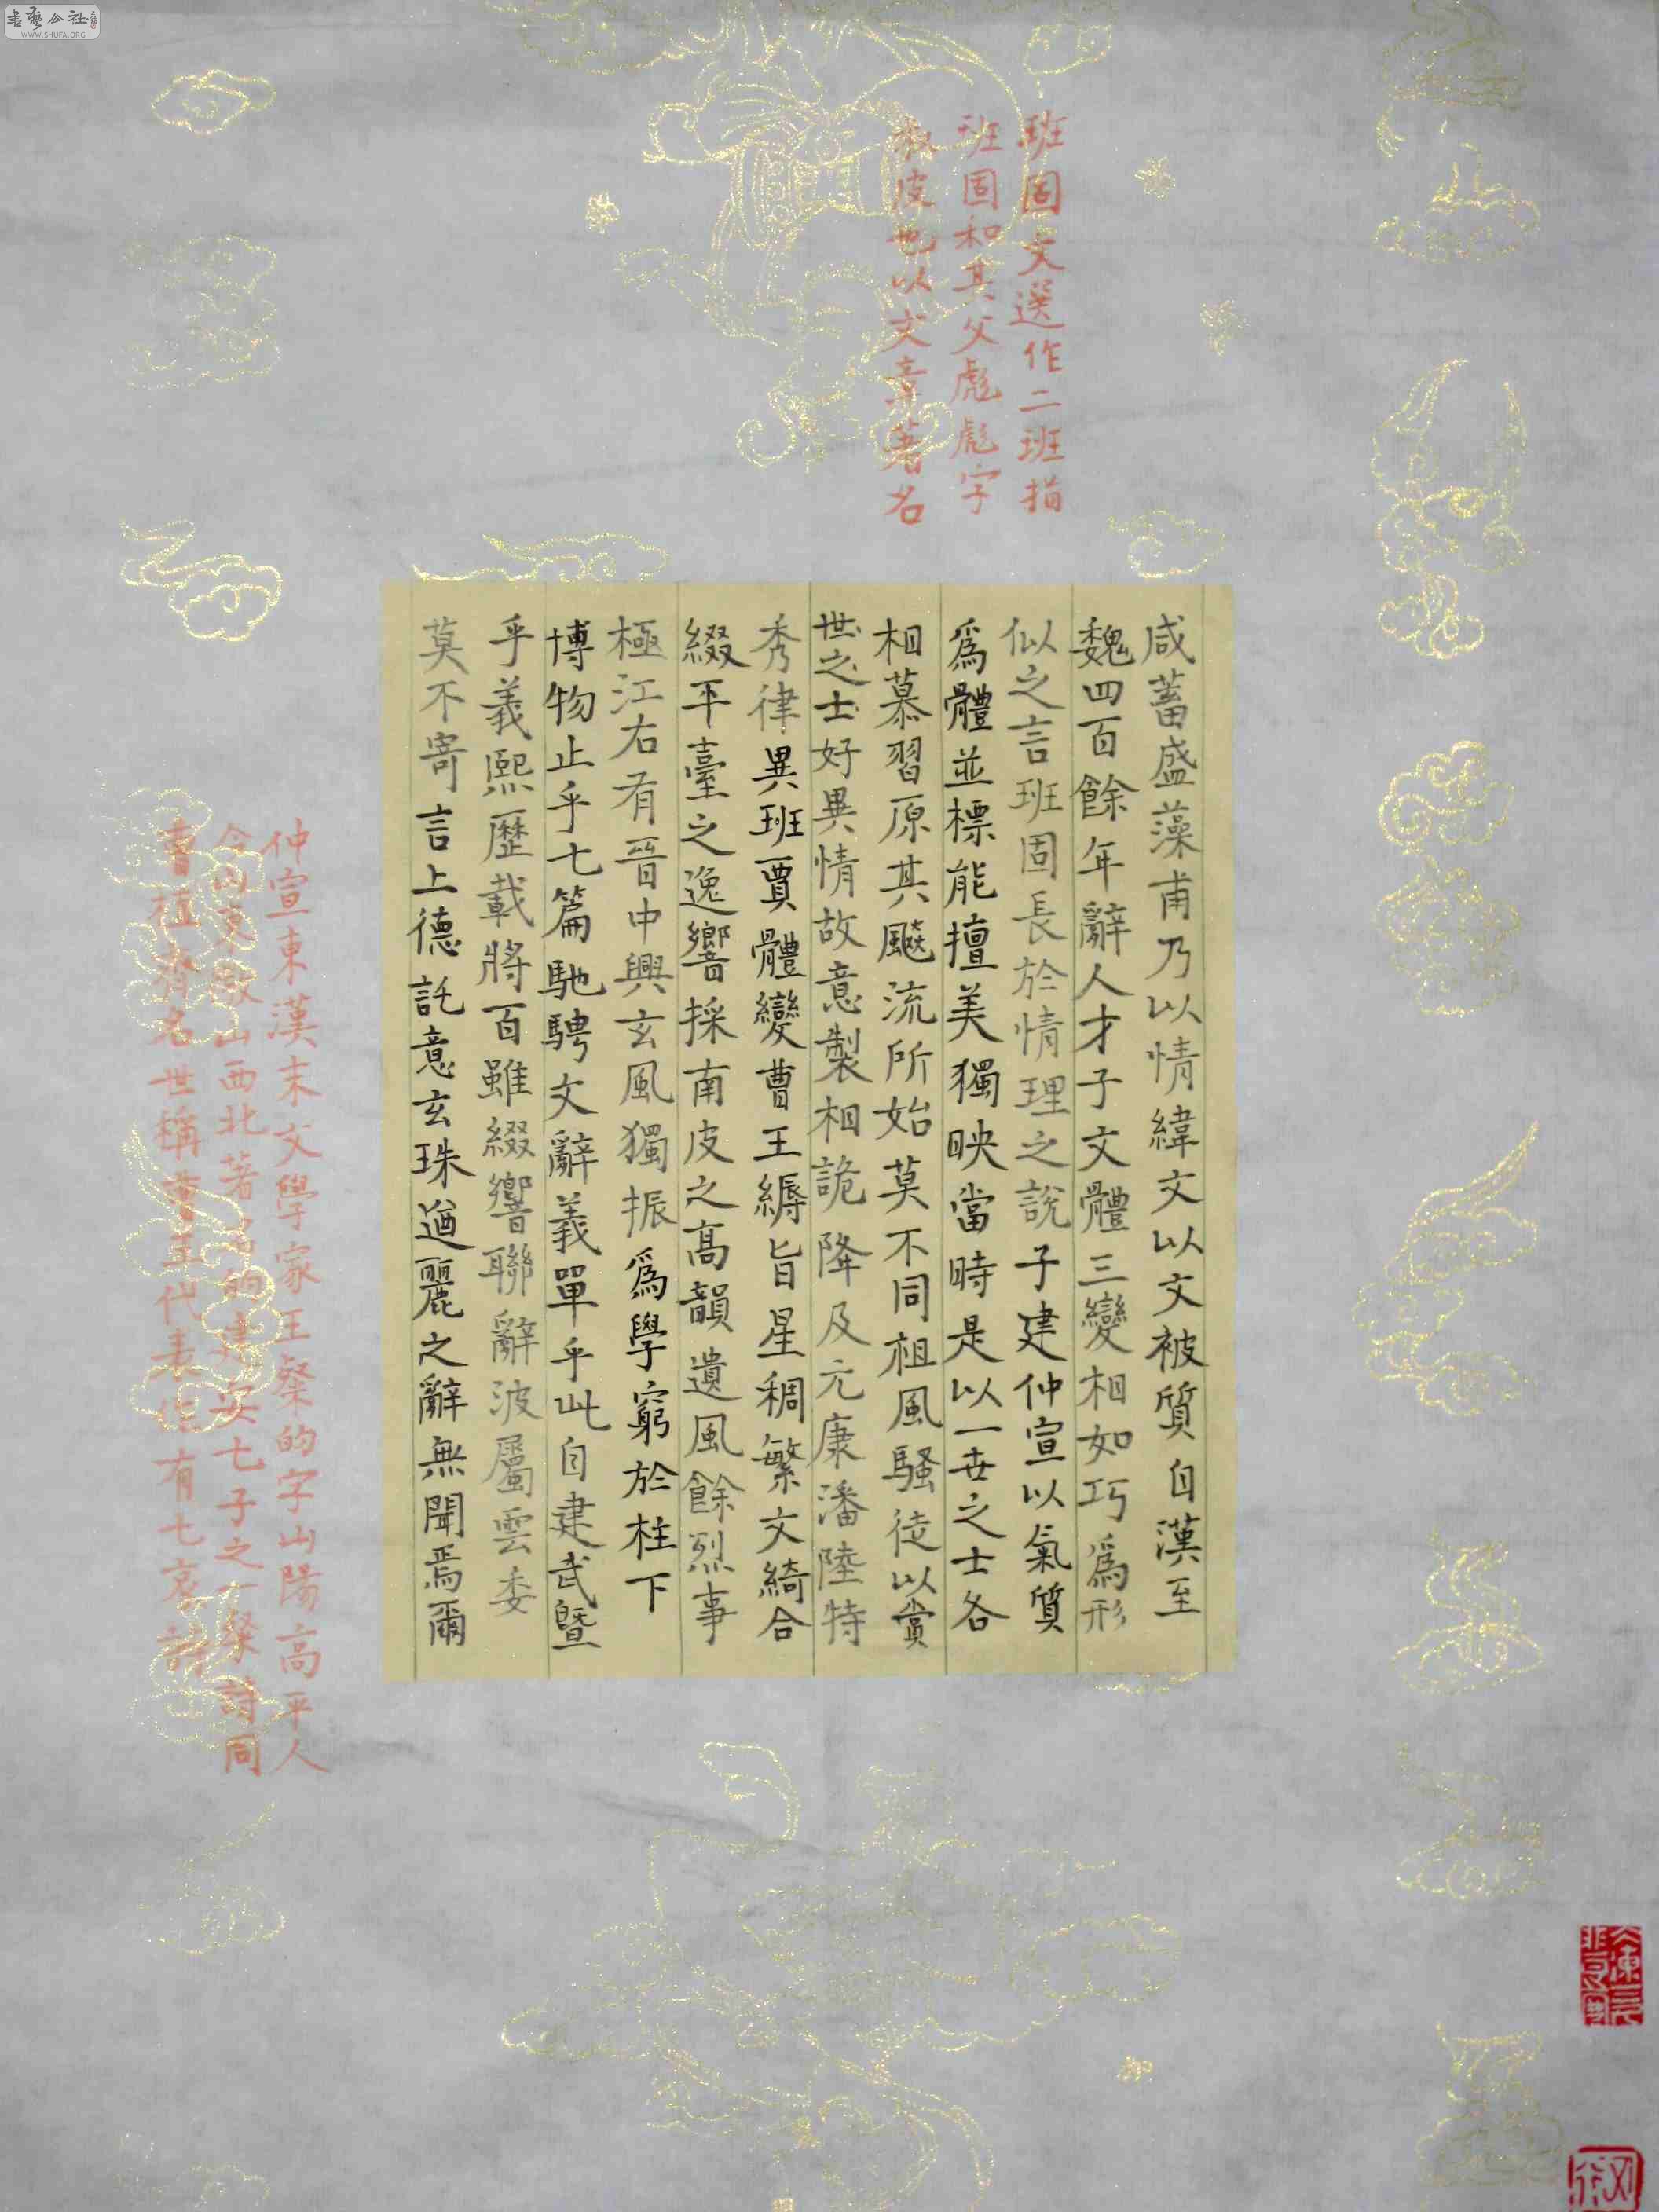 書藝公社
WWW.SHUFA.ORG
班固文選作二班指
班固和其父彪彪字
叔皮也以文章著名
咸蓄盛藻甫乃以情緯文以文被質自漢至
魏四百餘年辭人才子文體三變相如巧為形
似之言班固長於情理之說子建仲宣以氣質
為體並標能擅美獨映當時是以一世之士各
相慕習原其飈流所始莫不同祖風騷徒以賞
世之士好異情故意製相詭降及元康潘陸特
秀律異班賈體變曹王縟旨星稠繁文綺合
綴平臺之逸響採南皮之高韻遺風餘烈事
極江右有晉中興玄風獨振為學窮於柱下
博物止乎七篇馳騁文辭義單乎此自建武暨
乎義熙歷載將百雖綴響聯辭波屬雲委
莫不寄言上德託意玄珠遒麗之辭無聞焉爾
仲宣東漢末文學家王粲的字山陽高平人
今山東鄒山西北著名的建安七子之一粲詩同
曹植齊名世稱曹王代表作有七哀詩